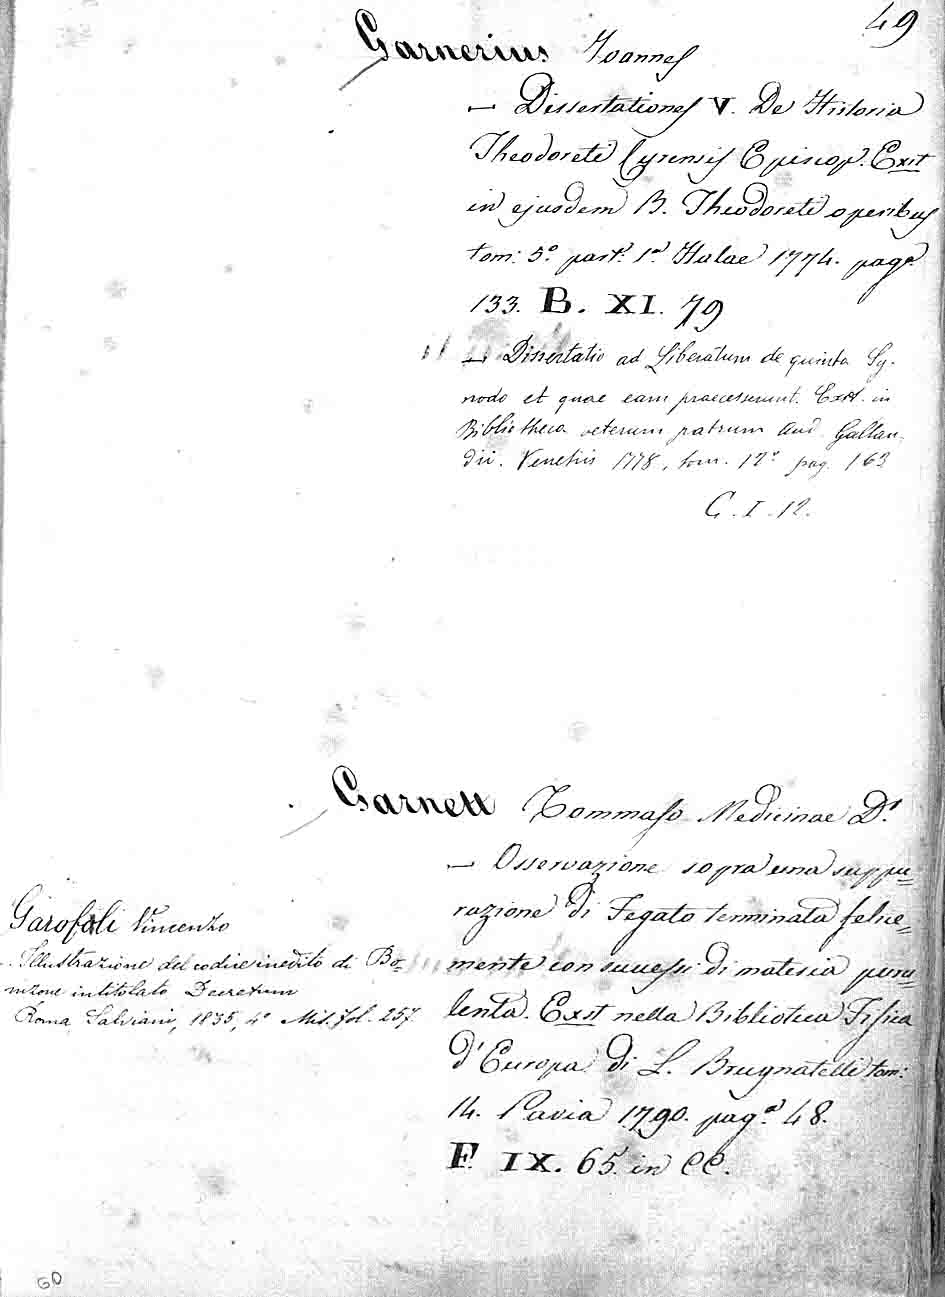 49
Garnerius Joannes
— Dissertationes V. De Historia
Theodoreti Cyrensis Episcop. Exst
in ejusdem B. Theodoreti operibus
tom: 5.º part.e 1.a Halae 1774. pag.a
133. B. XI. 79
— Dissertatio ad Liberatum de quinta Sy-
nodo et quae eam praecesserunt. Exst. in
Bibliotheca veterum patrum And. Gallan-
dii. Venetiis 1778, tom. 12.º pag. 163
C. I. 12.
Garnett Tommaso Medicinae D.r
— Osservazione sopra una suppu=
razione di Fegato terminata felice=
mente con successi di materia puru
lenta. Exst nella Biblioteca Fisica
d'Europa di L. Brugnatelli tom:
14. Pavia 1790. pag.a 48.
F. IX. 65. in CC.
Garofoli Vincenzo
- Illustrazione del codice inedito di Bo-
nizone intitolato Decretum
Roma, Salviani, 1835, 4º Mis. fol. 257
60